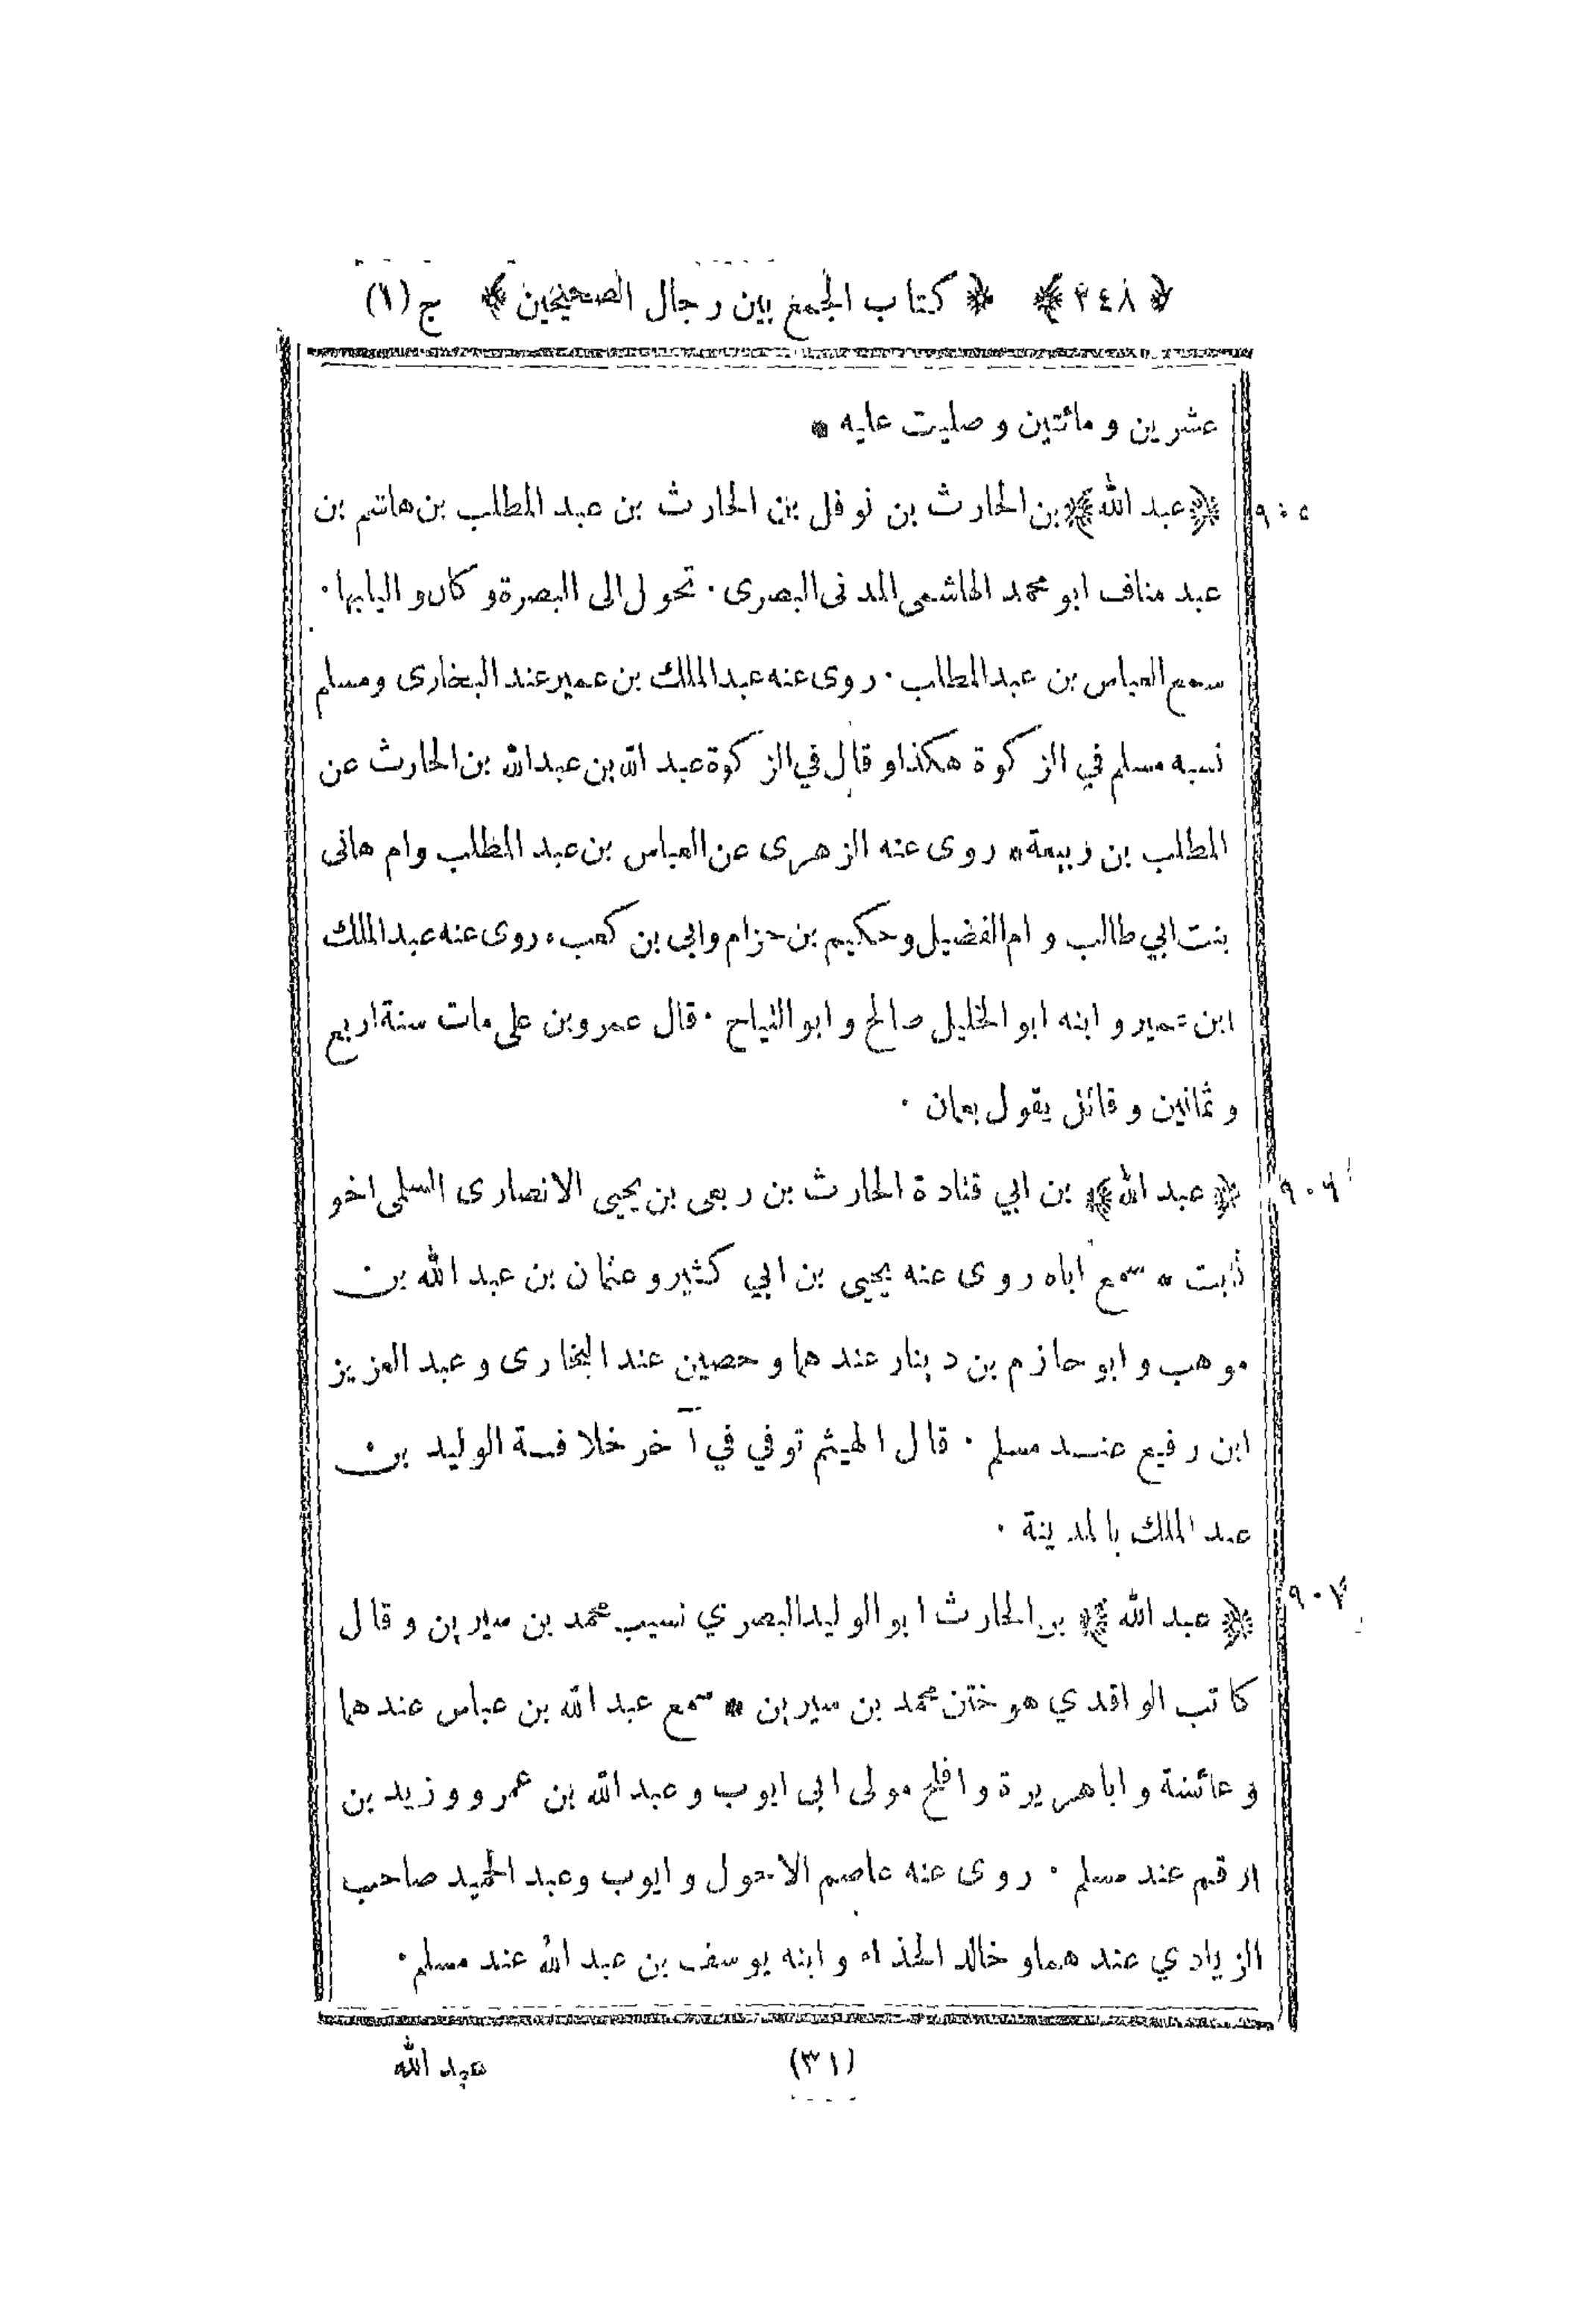 ﴿٢٤٨﴾ ﴿كتاب الجمع بين رجال الصحيحين﴾ ج (١)
عشرين و مائتين و صليت عليه *
٩٠٥ ﴿عبد الله﴾ بن الحارث بن نوفل بن الحارث بن عبد المطلب بن هاشم بن
عبد مناف ابو محمد الهاشمى المدنى البصرى ٠ تحول الى البصرة و كان واليا بها ٠
سمع العباس بن عبد المطلب ٠ روى عنه عبد الملك بن عمير عند البخارى ومسلم
نسبه مسلم في الزكوة هكذا و قال في الزكوة عبد الله بن عبد الله بن الحارث عن
المطلب بن ربيعة * روى عنه الزهرى عن العباس بن عبد المطلب وام هانى
بنت ابي طالب و ام الفضيل و حكيم بن حزام وابى بن كعب ٠ روى عنه عبد الملك
ابن عمير و ابنه ابو الخليل صالح و ابو التياح ٠ قال عمرو بن على مات سنة اربع
و ثمانين و قائل يقول بعمان ٠
٩٠٦ ﴿عبد الله﴾ بن ابي قتادة الحارث بن ربعى بن يحيى الانصارى السلمى اخو
ثابت * سمع اباه روى عنه يحيى بن ابي كثير و عثمان بن عبد الله بن
موهب و ابو حازم بن دينار عندهما و حصين عند البخارى و عبد العزيز
ابن رفيع عند مسلم ٠ قال الهيثم توفي في آخر خلافة الوليد بن
عبد الملك بالمدينة ٠
٩٠٧ ﴿عبد الله﴾ بن الحارث ابو الوليد البصري نسيب محمد بن سيرين و قال
كاتب الواقدي هو ختن محمد بن سيرين * سمع عبد الله بن عباس عندهما
و عائشة و اباهريرة و افلح مولى ابى ايوب و عبد الله بن عمرو و زيد بن
ارقم عند مسلم ٠ روى عنه عاصم الاحول و ايوب وعبد الحميد صاحب
الزيادي عندهما و خالد الحذاء و ابنه يوسف بن عبد الله عند مسلم ٠
(٣١) عبد الله